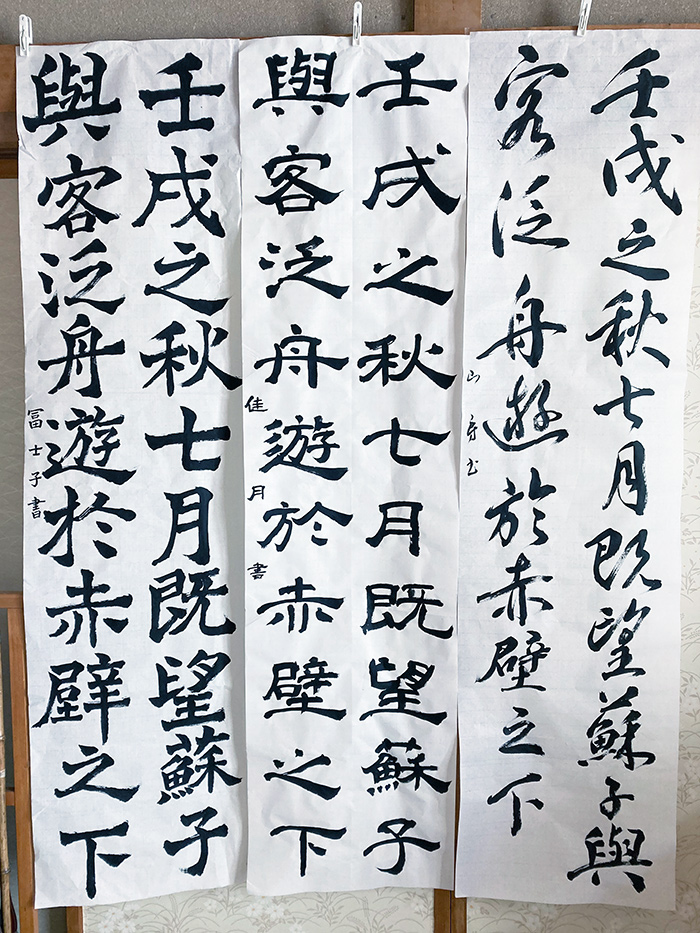 壬戌之秋七月既望蘇子與
客泛舟遊於赤壁之下
壬戌之秋七月既望蘇子
與客泛舟遊於赤壁之下
佳月書
壬戌之秋七月既望蘇子
與客泛舟遊於赤壁之下
冨士子書